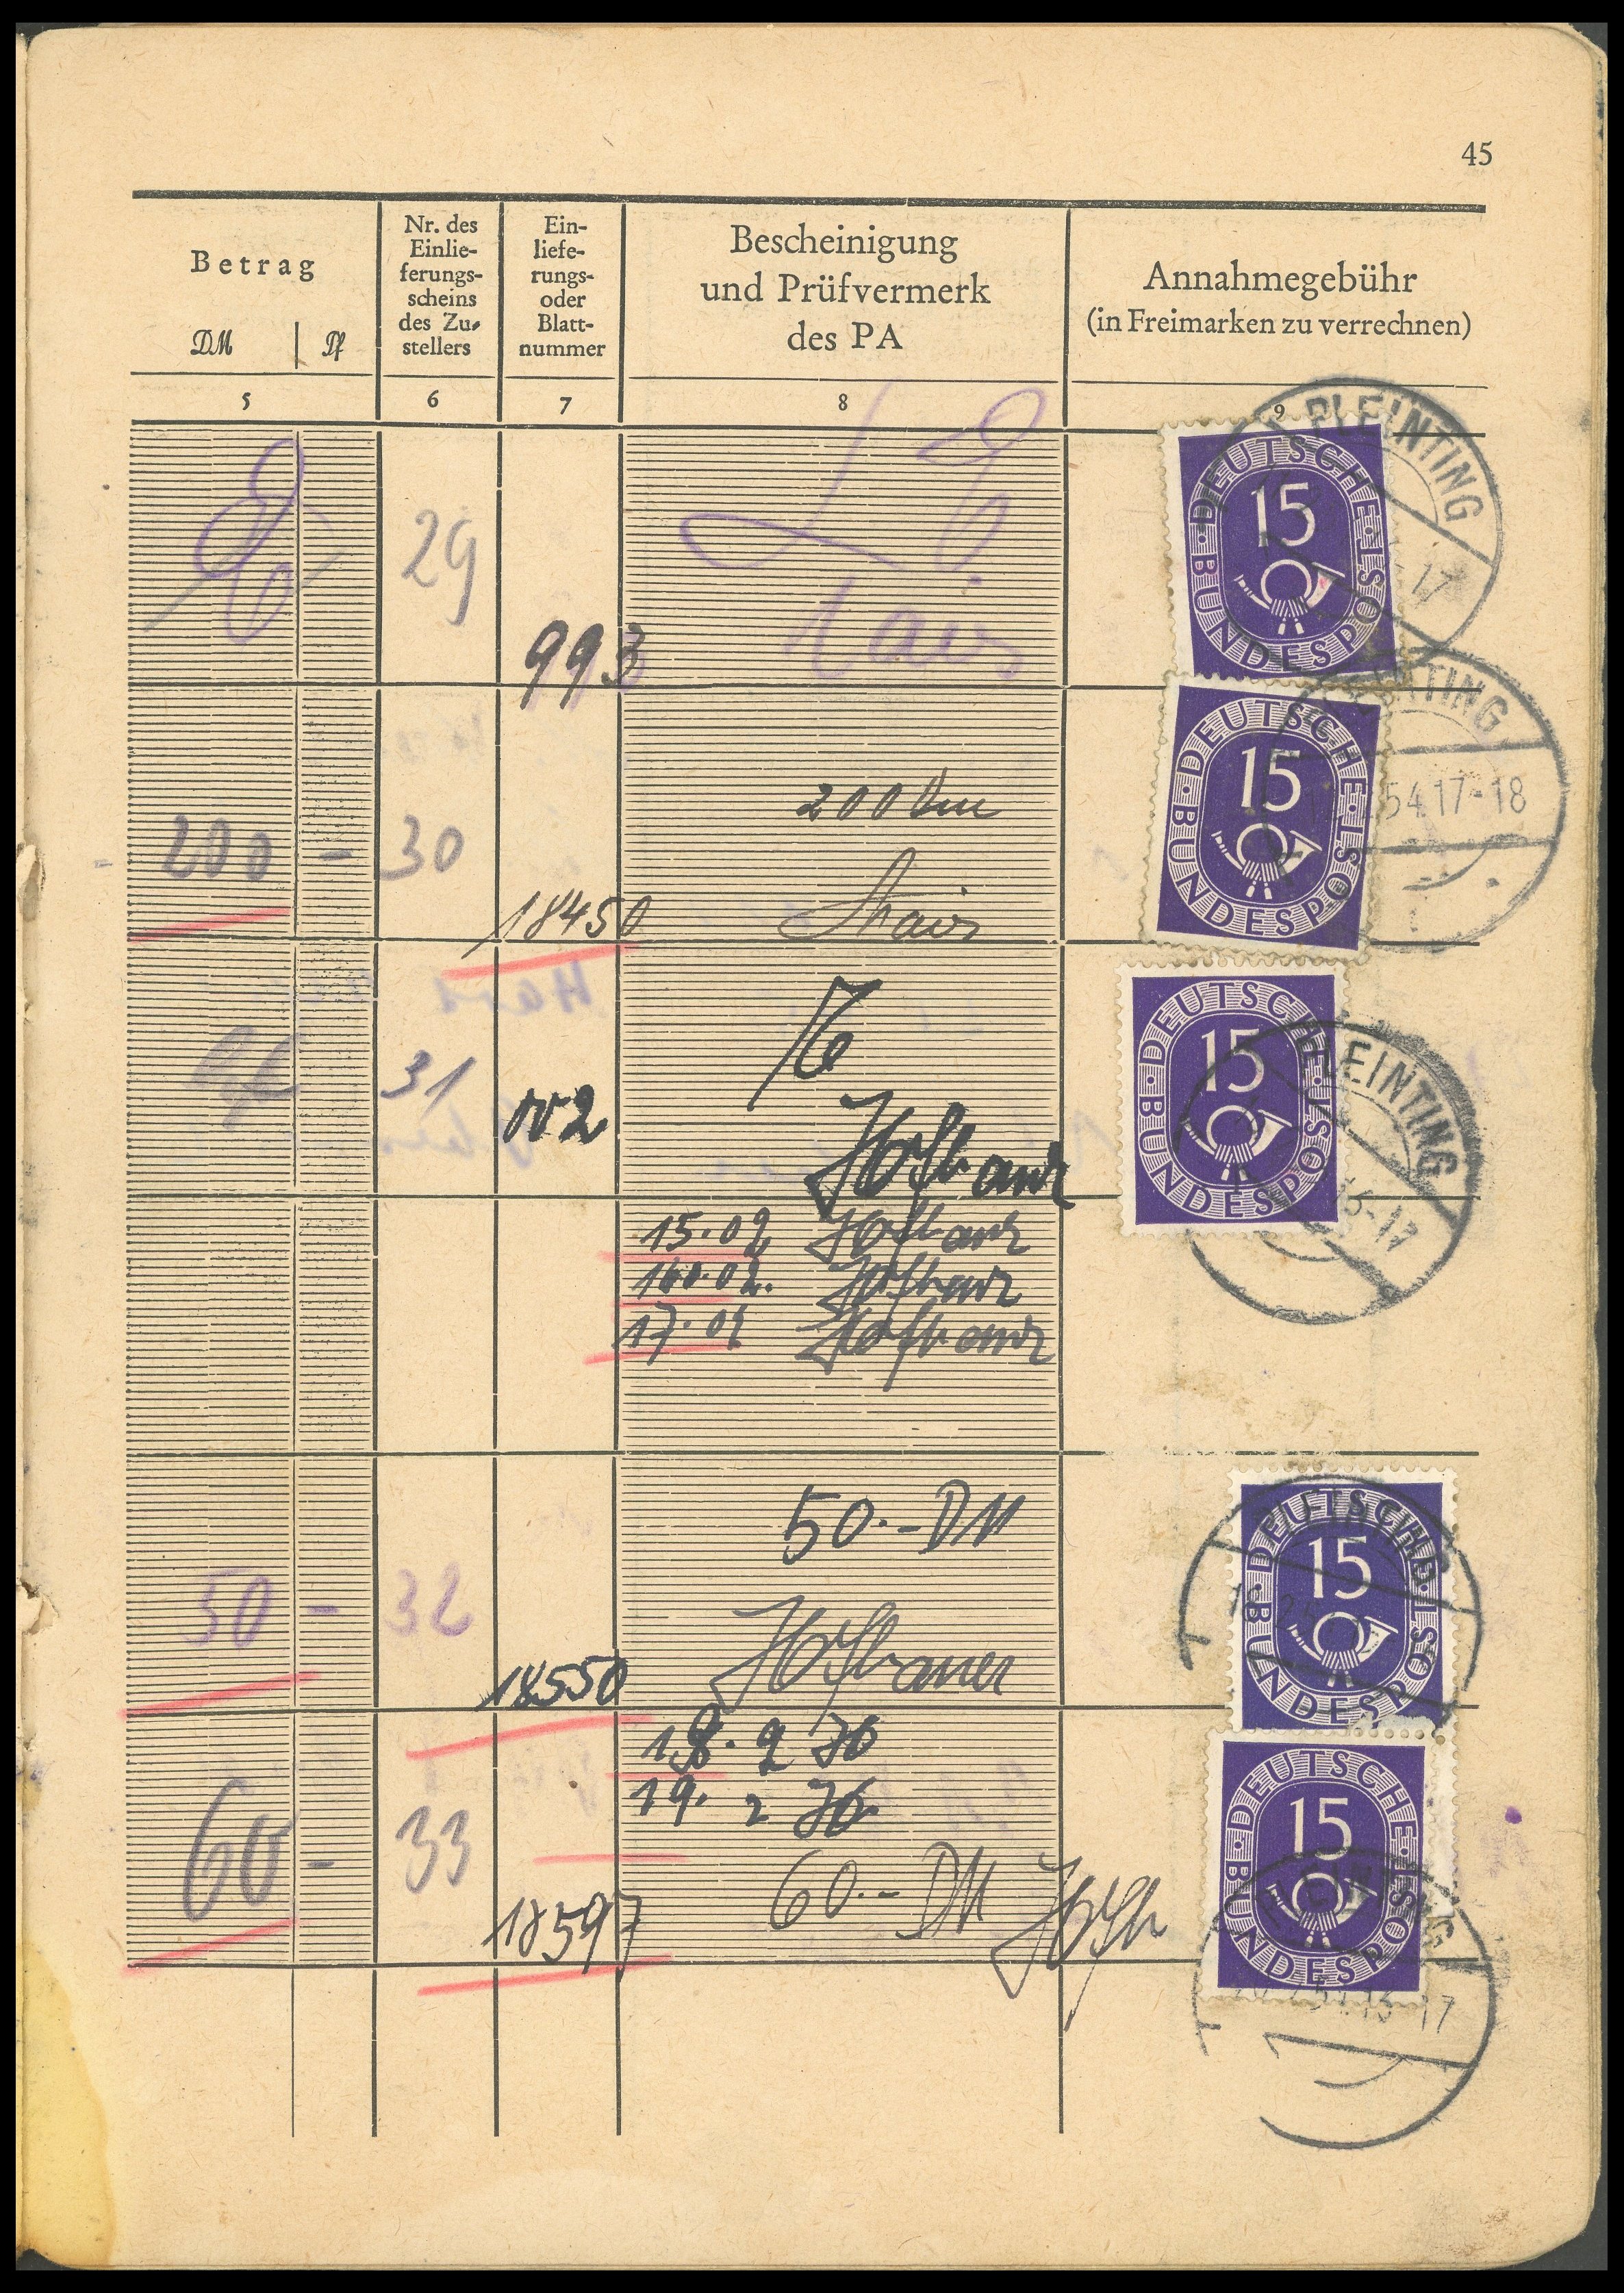 45
Betrag
DM Pf
Nr. des
Einlie-
ferungs-
scheins
des Zu-
stellers
Ein-
liefe-
rungs-
oder
Blatt-
nummer
Bescheinigung
und Prüfvermerk
des PA
Annahmegebühr
(in Freimarken zu verrechnen)
5 6 7 8 9
29
993
DEUTSCHE BUNDESPOST
15
PLEINTING
17
200 - 30
18450
200 Dm
DEUTSCHE BUNDESPOST
15
54.17-18
31
002
Hofbauer
DEUTSCHE BUNDESPOST
15
PLEINTING
15-17
15.02 Hofbauer
16.02. Hofbauer
17.02 Hofbauer
50 - 32
18550
50.- DM
Hofbauer
DEUTSCHE BUNDESPOST
15
18. 2 Ho
19. 2 Ho
60 - 33
18597
60.- DM Hofb
DEUTSCHE BUNDESPOST
15